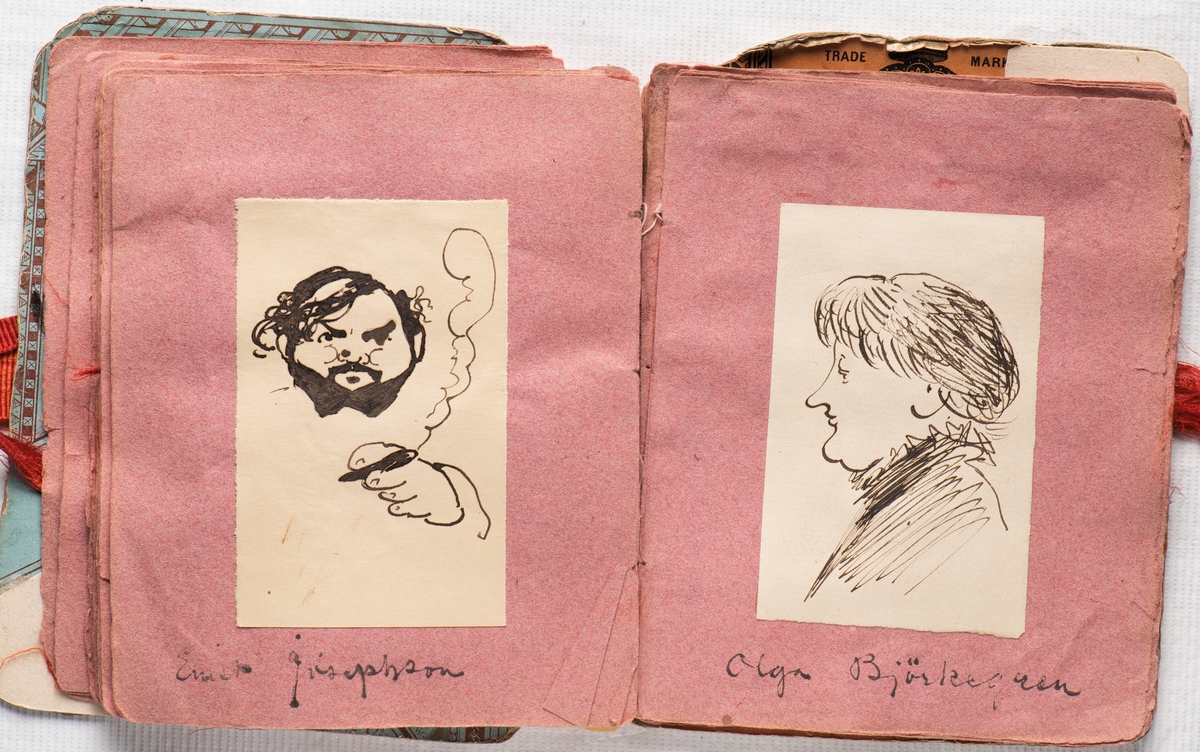 TRADE MARK
Josephson
Olga Björkegren